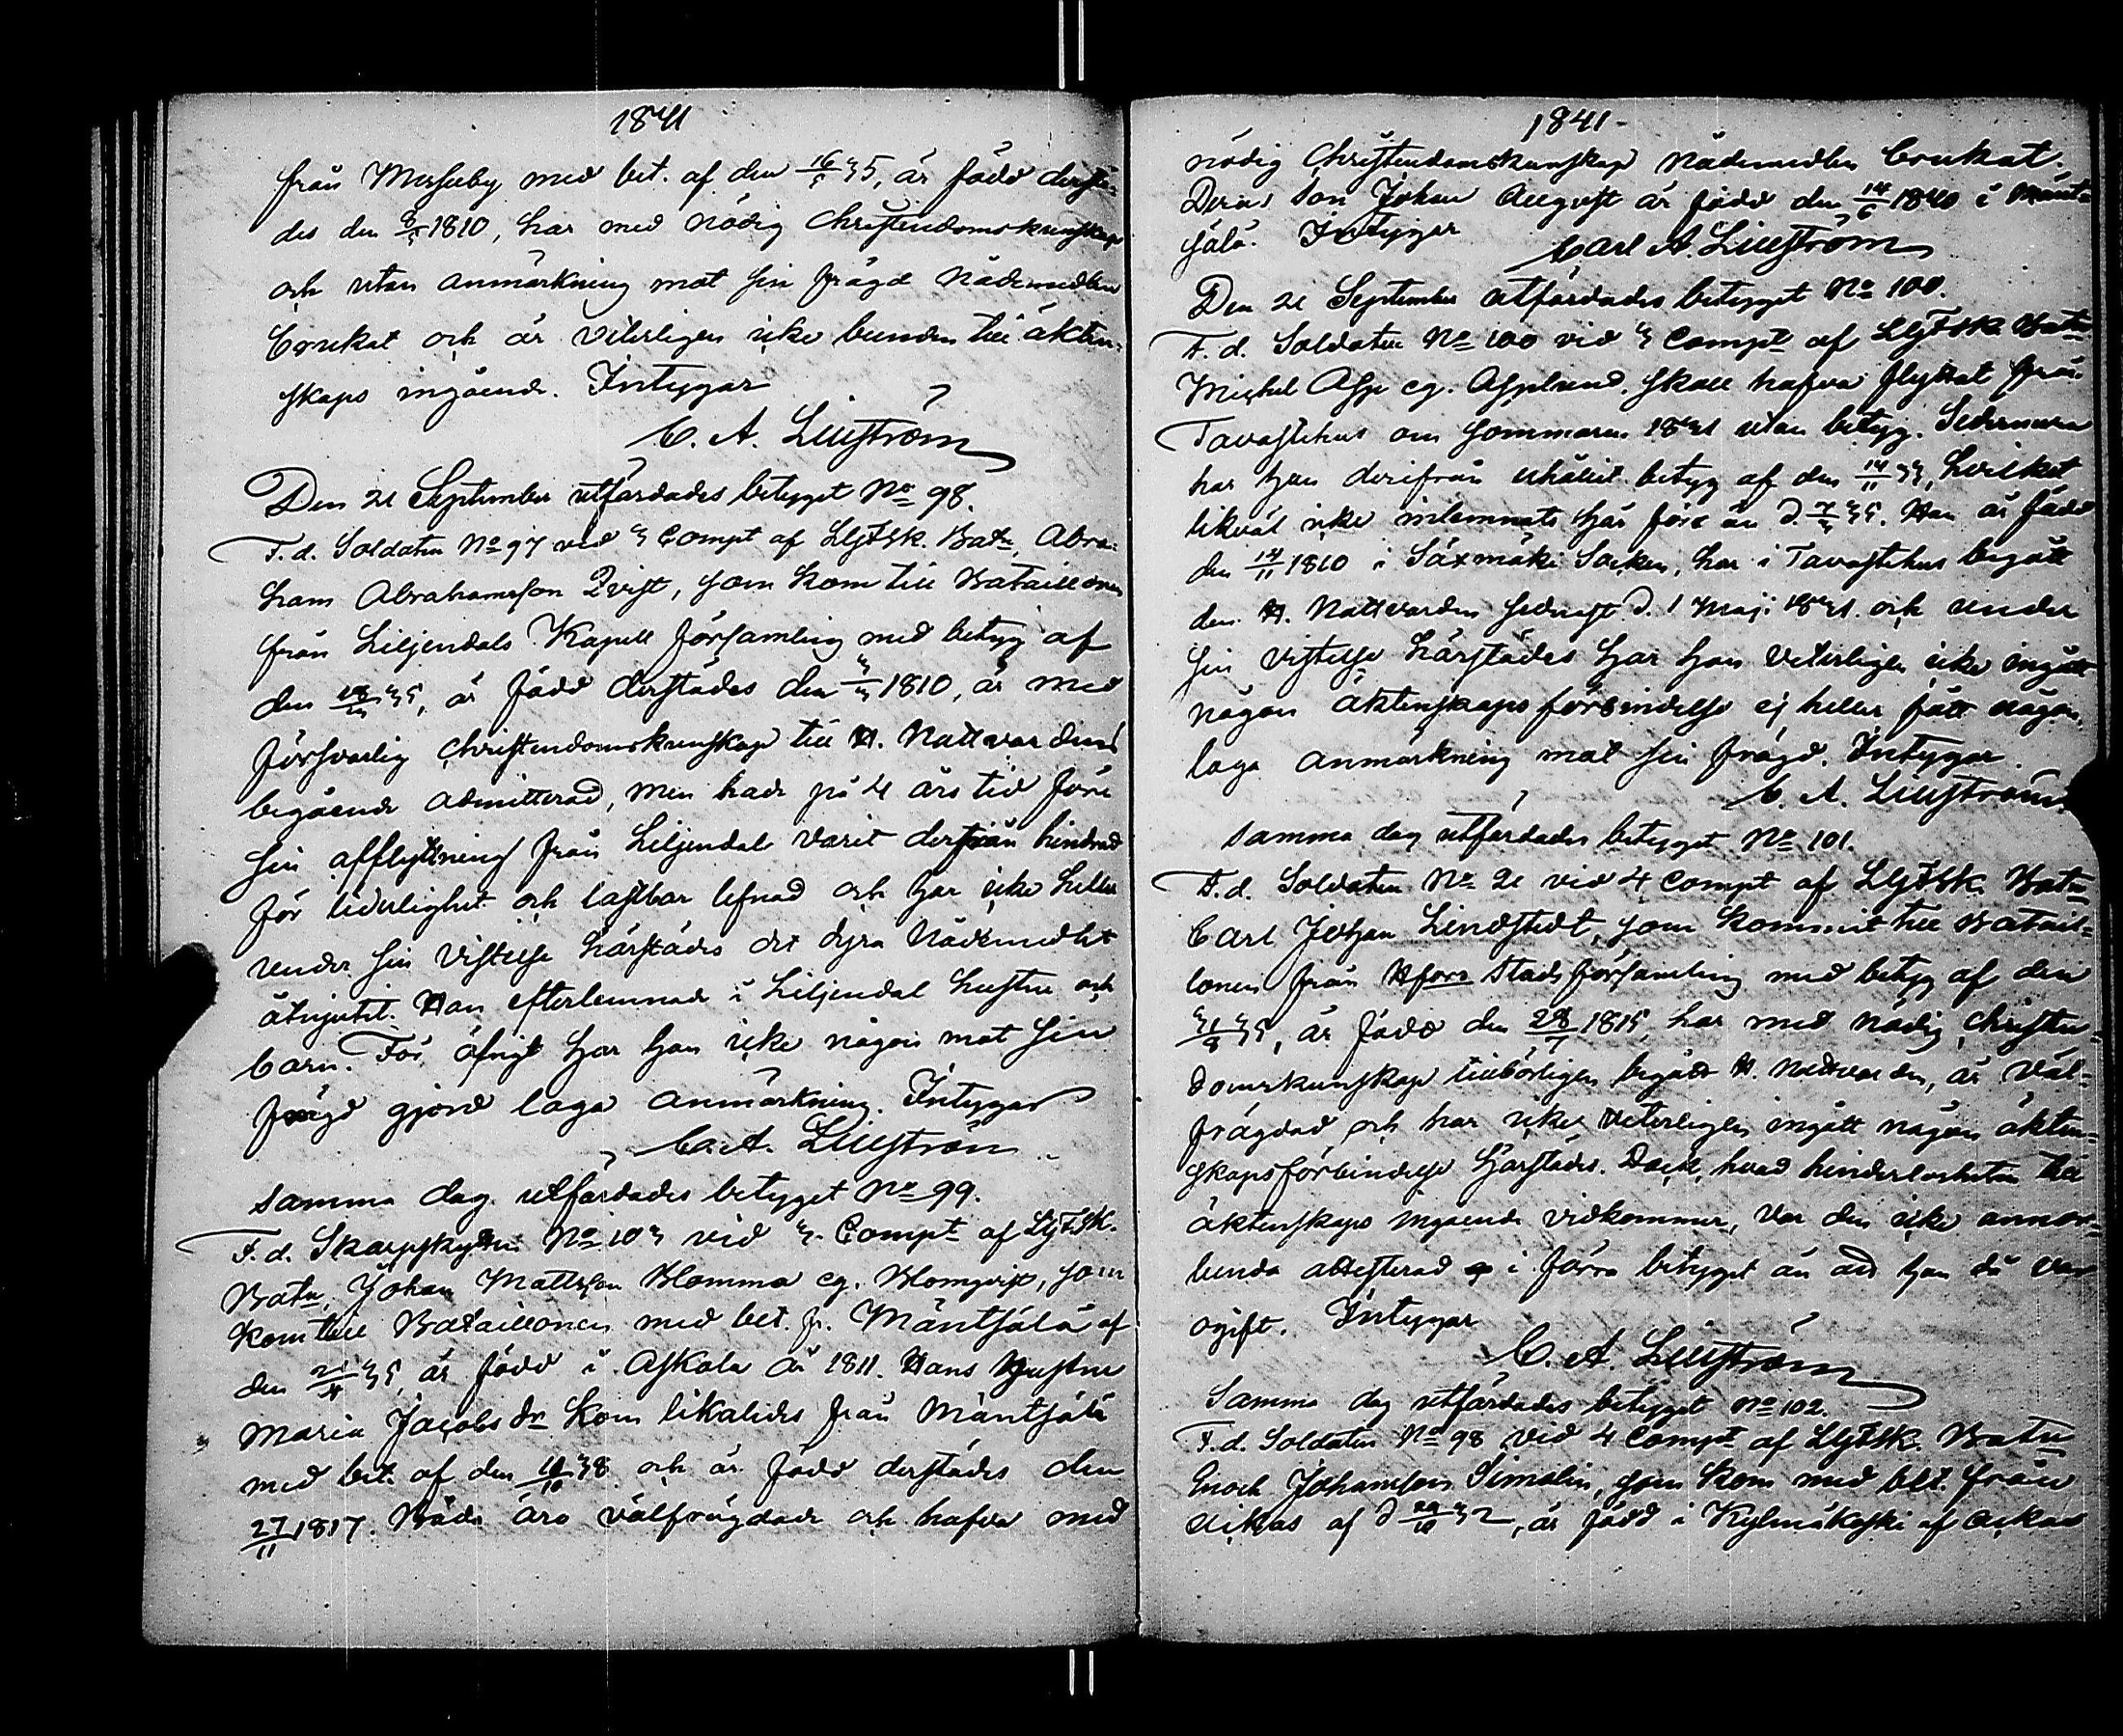 1841
från Mörskby med bet. af den 16/5 35, är född derstä-
des den 8/5 1810, har med nödig Christendomskunskap
och utan anmärkning mot sin frägd Nådemedlen
brukat och är veterligen icke bunden till äkten-
skaps ingående. Intygar
C. A. Liliström
Den 21 September utfärdades betyget No 98.
F. d. Soldaten No 97 vid 3 Compt af LLjfsk. Batn, Abra-
ham Abrahamsson Qvist, som kom till Bataillonen
från Liljendals Kapell församling med betyg af
den 35, är född derstädes den 1810, är med
försvarlig Christendomskunskap till H. Nattvardens
begående admitterad, men hade på 4 års tid före
sin afflyttning från Liljendal varit derifrån hindrad
för liderlighet och lastbar lefnad och har icke heller
under sin vistelse härstädes det dyra Nådemedlet
åtnjutit. Han efterlemnade i Liljendal hustru och
barn. För öfrigt har han icke någon mot sin
frägd gjord laga anmärkning. Intygar
C. A. Liliström
Samma dag utfärdades betyget No 99.
F. d. Skarpskytten No 103 vid 3. Compt af LLjfsk.
Batn, Johan Mattsson Blomma eg. Blomqvist, som
kom till Bataillonen med bet. fr. Mäntsälä af
den 21/4 35, är född i Askola år 1811. Hans Hustru
Maria Jacobsdr kom likaledes från Mäntsälä
med bet. af den 11/10 38 och är född derstädes den
27/11 1817. Både äro välfrägdade och hafva med
1841-
nödig Christendomskunskap Nådemedlen brukat.
Deras Son Johan August är född den 14/6 1840 i Mänt-
sälä. Intygar
Carl A. Liliström
Den 21 September utfärdades betyget No 100.
F. d. Soldaten No 100 vid 3 Compt af LLjfsk Batn
Michel Asp eg. Asplund, skall hafva flyttat från
Tavastehus om sommaren 1831 utan betyg. Sedermera
har han derifrån erhållit betyg af den 14/11 33, hvilket
likväl icke inlemnats här före än d. 35. Han är född
den 14/11 1810 i Säxmäki Socken, har i Tavastehus begått
den H. Nattvarden sednast d. 1 Maji 1831. och under
sin vistelse härstädes har han veterligen icke ingått
någon äktenskapsförbindelse ej heller fått någon
laga anmärkning mot sin frägd. Intygar.
C. A. Liliström
Samma dag utfärdades betyget No 101.
F. d. Soldaten No 21 vid 4 Compt af LLjfsk Batn
Carl Johan Lindstedt, som kommit till Batail-
lonen från Hfors Stads församling med betyg af den
31/8 35, är född den 28/7 1815, har med nödig christen-
domskunskap tillbörligen begått H. Nattvarden, är väl-
frägdad och har icke veterligen ingått någon äkten-
skapsförbindelse härstädes. Dock, hvad hinderlösheten till
äktenskaps ingående vidkommer, var den icke annor-
lunda attesterad i förra betyget än att han då var
ogift. Intygar
C. A. Liliström
Samma dag utfärdades betyget No 102.
F. d. Soldaten No 98 vid 4 Compt af LLjfsk. Batn
Enoch Johansson Simolin, som kom med bet. från
Ackas af d 29/10 32, är född i Kylmäkoski af Ackas